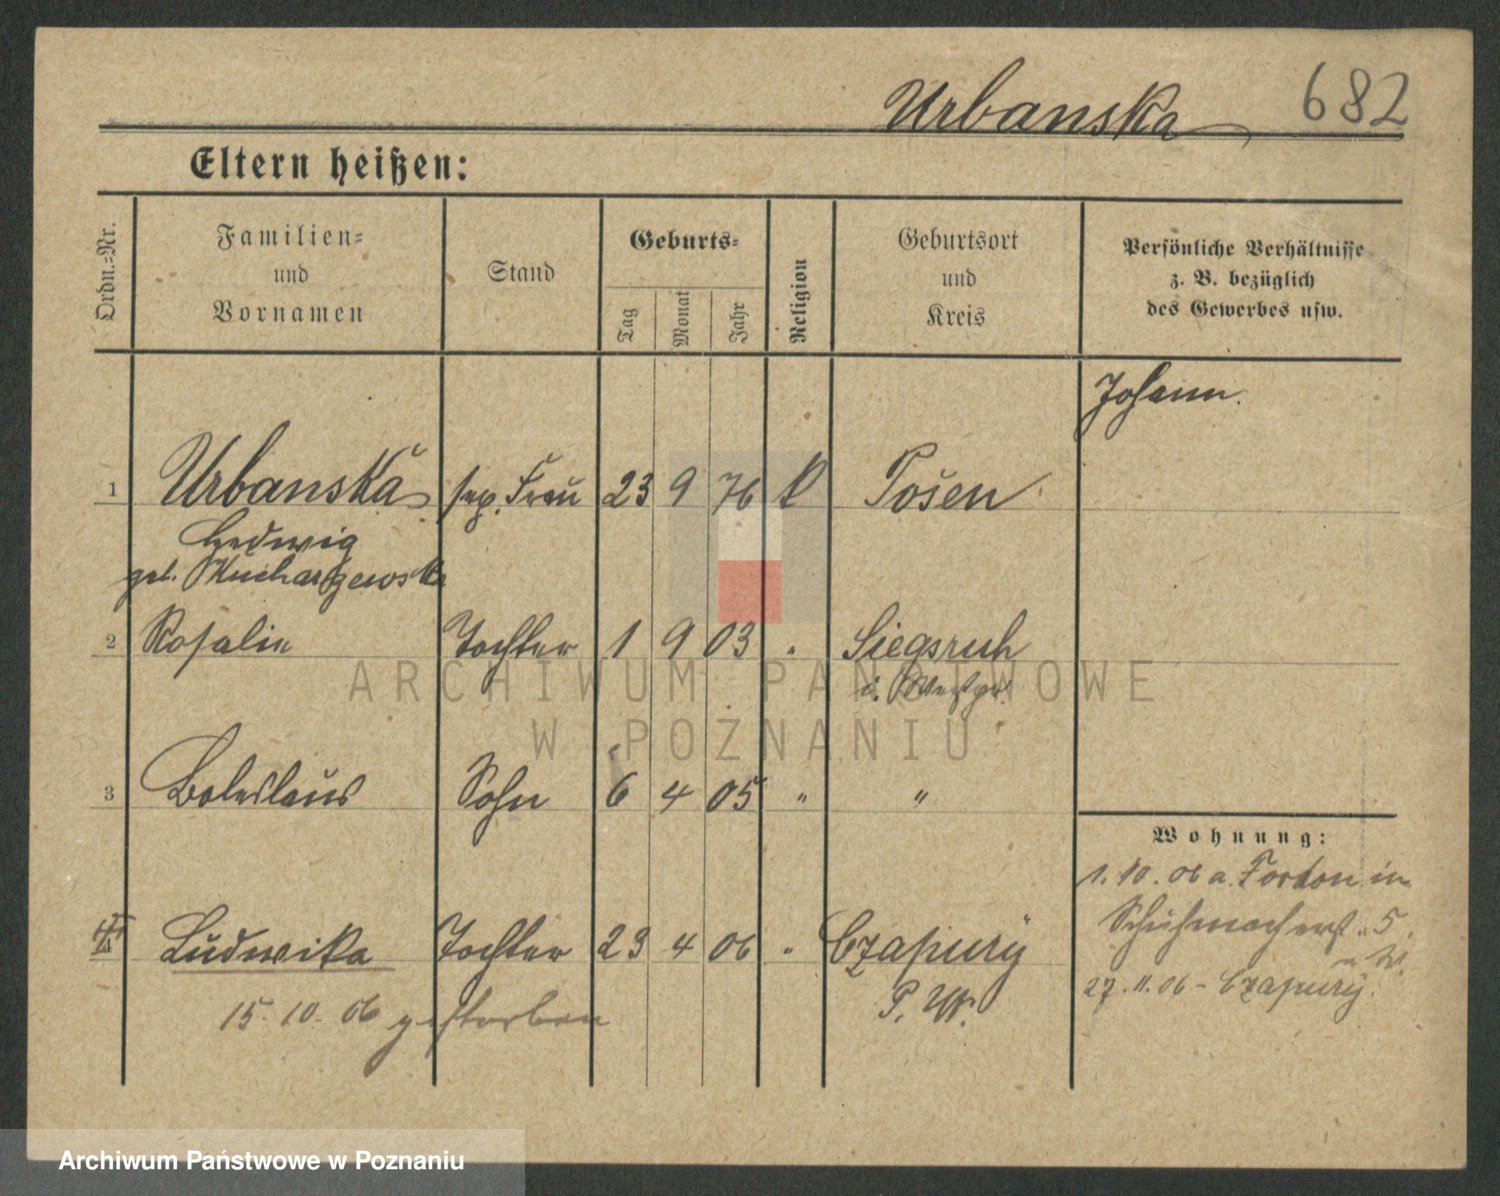 Urbanska 682
Eltern heißen:
Ordn.-Nr.
Familien-
und
Vornamen
Stand
Geburts-
Tag
Monat
Jahr
Religion
Geburtsort
und
Kreis
Persönliche Verhältnisse
z. B. bezüglich
des Gewerbes usw.
Johann.
1 Urbanska sep. Frau 23 9 76 k Posen
Hedwig
geb. Kucharzewska
2 Rosalie Tochter 1 9 03 " Siegsruh
i. Westpr.
3 Boleslaus Sohn 6 4 05 " "
Wohnung:
1. 10. 06 a. Fordon in
Schuhmacherst. 5.
4 Ludwika Tochter 23 4 06 " Czapury
P. W.
27. 11. 06 - Czapury.
15. 10. 06 gestorben
ARCHIWUM PAŃSTWOWE
W POZNANIU
Archiwum Państwowe w Poznaniu